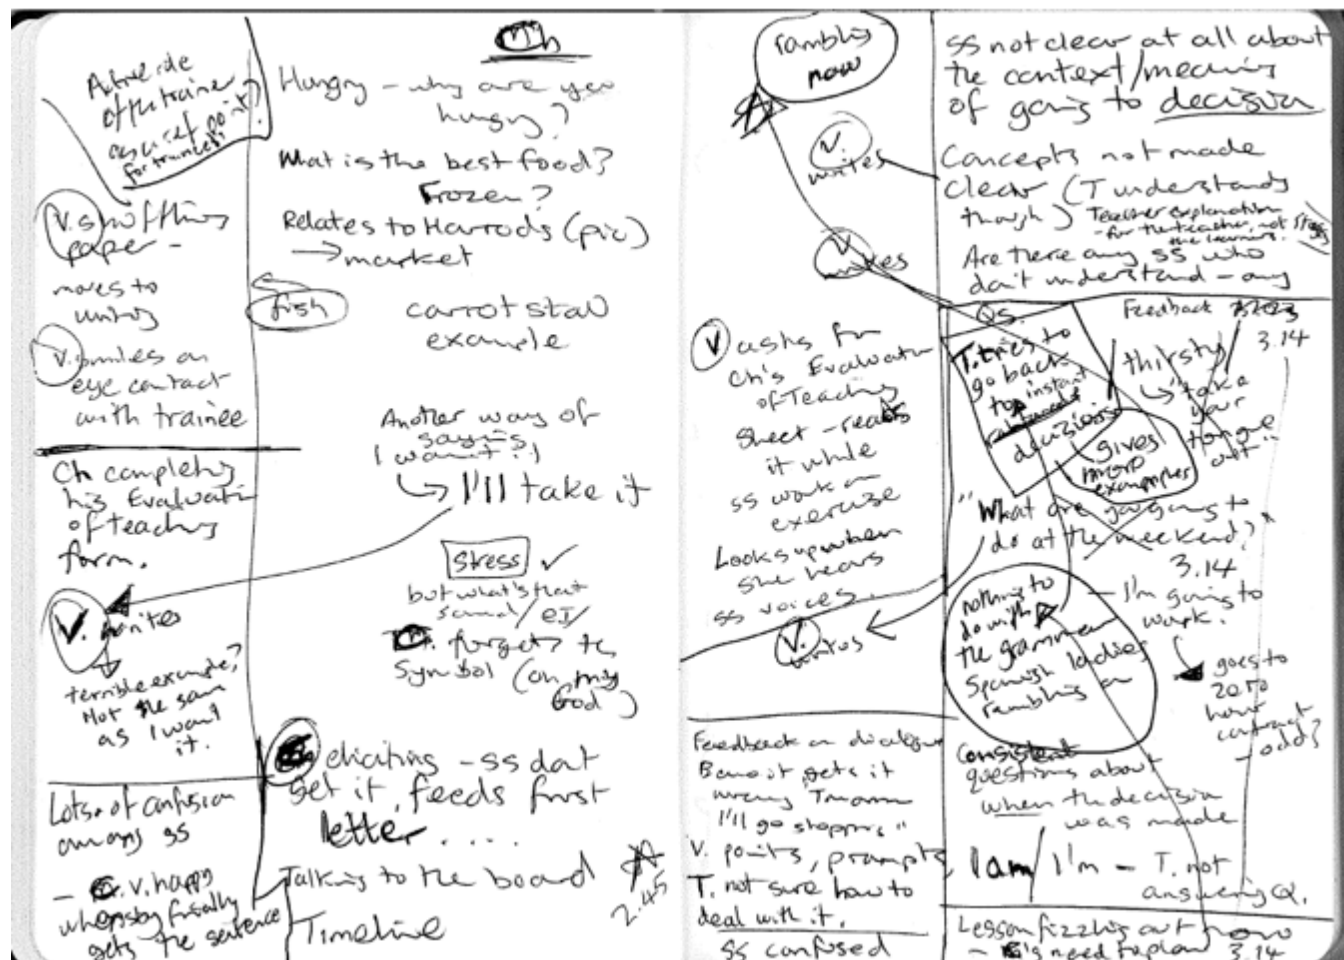 Active role
of the trainer
as useful point?
for trainees?
V. shuffling
paper -
moves to
writing
V. smiles on
eye contact
with trainee
Ch completing
his Evaluation
of teaching
form.
V. writes
terrible example?
Not the same
as I want
it.
Lots of confusion
among ss
v. happy
finally
gets the sentence
Hungry - why are you
hungry?
What is the best food?
Frozen?
Relates to Harrods (pic)
→ market
fish
carrot stall
example
Another way of
saying
I want it
I'll take it
Stress ✓
but what's that
sound /eI/
forgets the
symbol (oh my
God)
eliciting - ss don't
get it, feeds first
letter....
Talking to the board
2.45
Timeline
rambling
now
V.
writes
V.
writes
V asks for
Ch's Evaluation
of Teaching
Sheet - reads
it while
ss work on
exercise
Looks up when
she hears
ss voices.
V.
writes
Feedback on dialogue
Benoit gets it
wrong "Tomorrow
I'll go shopping"
V. points, prompts
T. not sure how to
deal with it.
ss confused
ss not clear at all about
the context/meaning
of going to decision
Concepts not made
clear (T understands
though) Teacher explanation
- for the teacher, not
the learners.
Are there any ss who
don't understand - any
Qs.
Feedback
3.14
T. tries to
go back
to instant
decisions
gives
more
examples
thirsty
"take
your
tongue
out"
"What are you going to
do at the weekend?"
3.14
- I'm going to
work.
nothing to
do with
the grammar
Spanish ladies
rambling on
goes to
zero
how
contract
- odd?
Consistent
questions about
when the decision
was made
I am / I'm - T. not
answering Q.
Lesson fizzling out now
need to plan 3.14